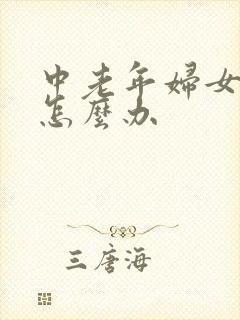 中老年婦女
怎麼办
三唐海